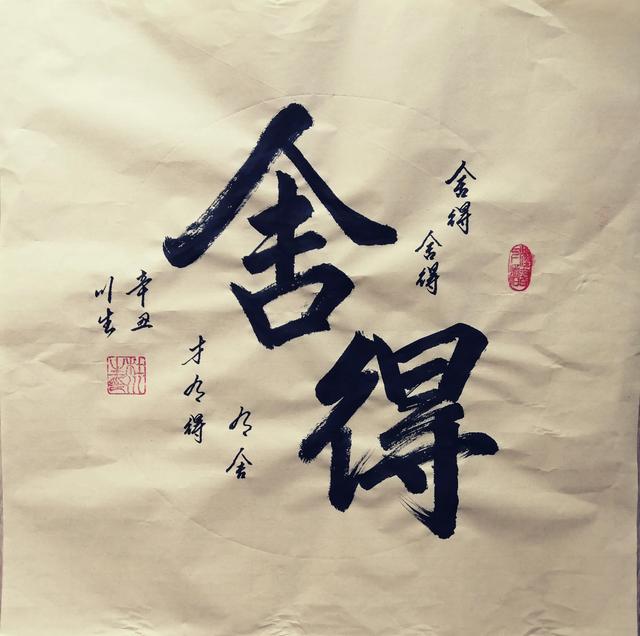 舍得
舍得
舍得
有舍
才有得
辛丑
川生